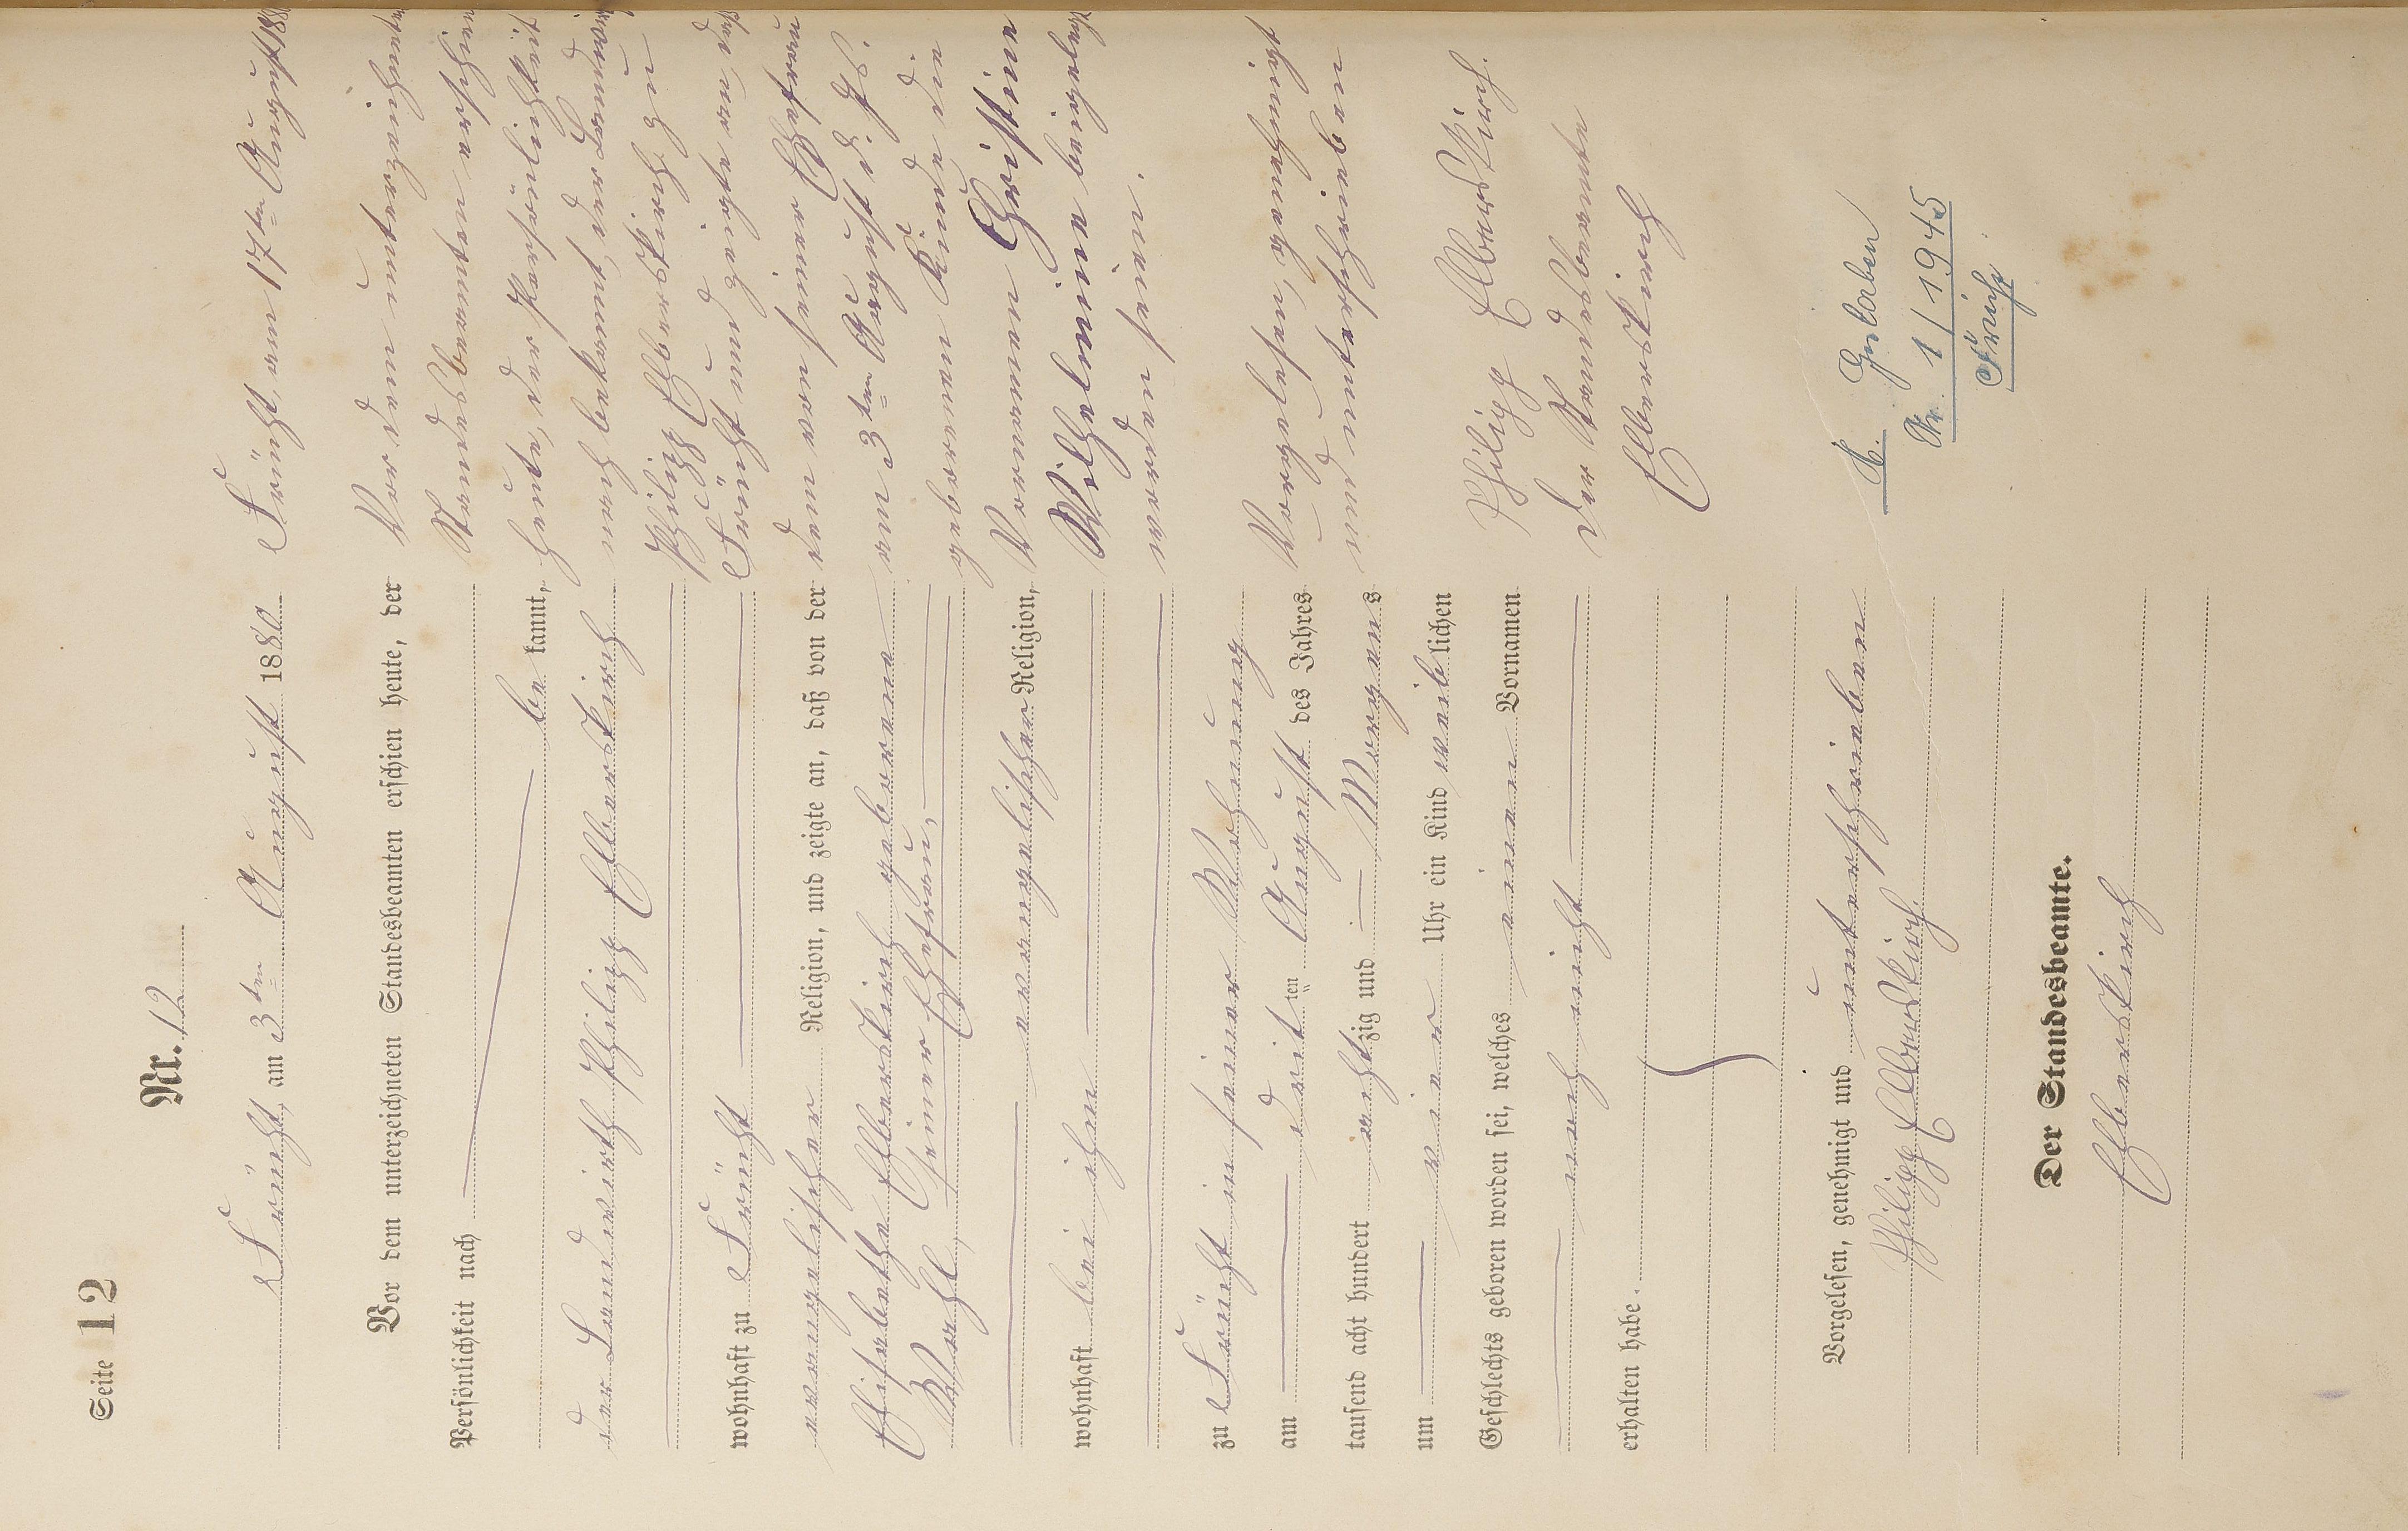 Seite 12
Nr. 12
Frücht, am 3ten August 1880
Vor dem unterzeichneten Standesbeamten erschien heute, der
Persönlichkeit nach
be kannt,
der Landwirth Philipp Elberskirch
wohnhaft zu Frücht
evangelischer Religion, und zeigte an, daß von der
Elisabethe Elberskirch geborene
seiner Ehefrau,
evangelischer Religion,
wohnhaft bei ihm
zu Frücht in seiner Wohnung
am drit ten August des Jahres
tausend acht hundert achtzig und Morgens
um vier Uhr ein Kind weiblichen
Geschlechts geboren worden sei, welches einen Vornamen
noch nicht
erhalten habe.
Vorgelesen, genehmigt und unterschrieben
Philipp Elberskirch
Der Standesbeamte.
Elberskirch
Frücht, am 17ten August 188
Vor dem unterzeichneten
Standesbeamten erschien
heute, der Persönlichkeit
nach bekannt, der Landwirt
Philipp Elberskirch zu
Frücht und zeigte an, daß
dem von seiner Ehefrau
am 3ten August d. Js.
geborenen Kinde, die
Vornamen Christine
Wilhelmine beigelegt
worden seien.
Vorgelesen, genehmigt
und unterschrieben
Philipp Elberskirch.
Der Standesbeamte
Elberskirch
Gestorben
Nr. 1/1945
Frücht